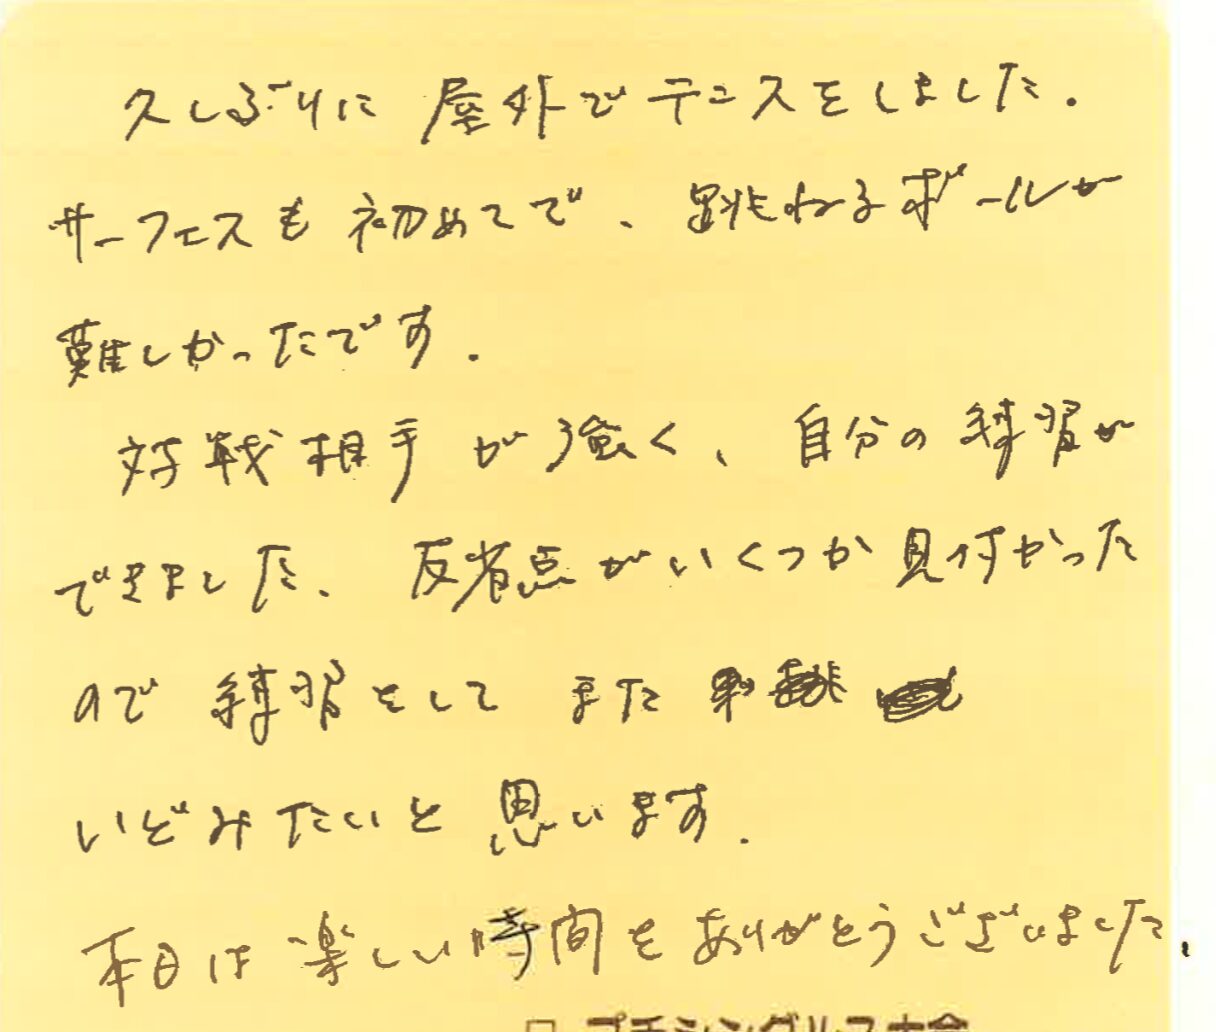 久しぶりに屋外でテニスをしました.
サーフェスも初めてで、跳ねるボールが
難しかったです.
対戦相手が強く、自分の練習が
できました、反省点がいくつか見付かった
ので練習をしてまた
いどみたいと思います.
本日は楽しい時間をありがとうございました、
プチシングルス大会